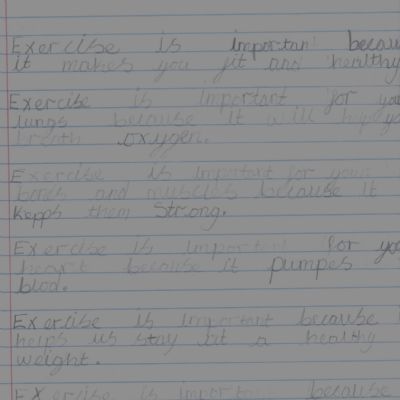 Exercise is important becau
it makes you fit and healthy
Exercise is important for you
lungs because it will help yo
breath oxygen.
Exercise is important for your
bones and muscles because it
kepps them strong.
Exercise is important for yo
heart because it pumpes
blod.
Exercise is important because
helps us stay at a healthy
weight.
Exercise is important because